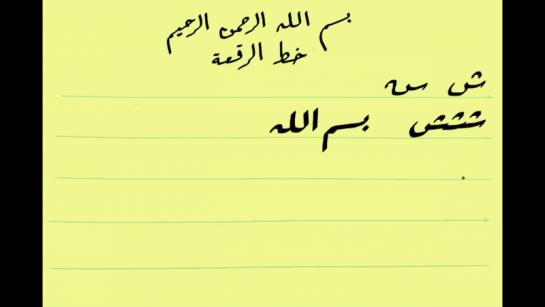 بسم الله الرحمن الرحيم
خط الرقعة
ش س
ششش بسم الله